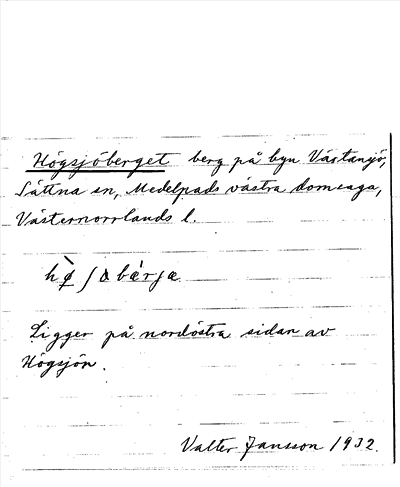 Högsjöberget berg på byn Västansjö,
Sättna sn, Medelpads västra domsaga,
Västernorrlands l.
Ligger på nordöstra sidan av
Högsjön.
Valter Jansson 1932.